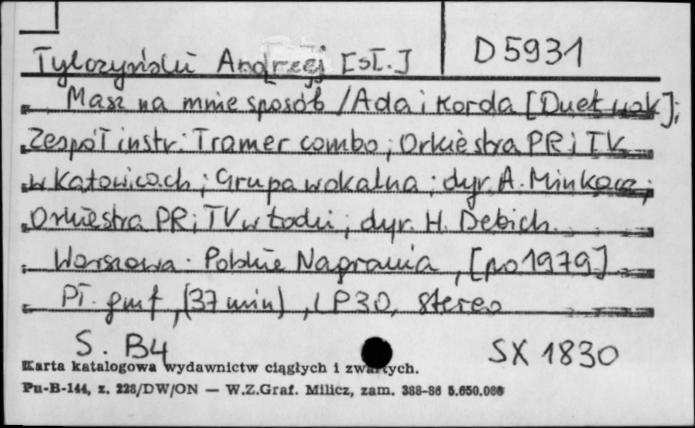 D5931
Tylczyński Andrzej [sł.]
Masz na mnie sposób / Ada i Korda [Duet wok];
Zespół instr. Tramer combo; Orkiestra PR i TV
w Katowicach; Grupa wokalna; dyr. A. Minkacz;
Orkiestra PR i TV w Łodzi; dyr. H. Debich.
Warszawa: Polskie Nagrania, [po 1979]
Pł. gmf, (37 min), LP30, stereo
S. B4
SX 1830
Karta katalogowa wydawnictw ciągłych i zwartych.
Pu-B-144, z. 228/DW/ON — W.Z.Graf. Milicz, zam. 388-86 5.650.000